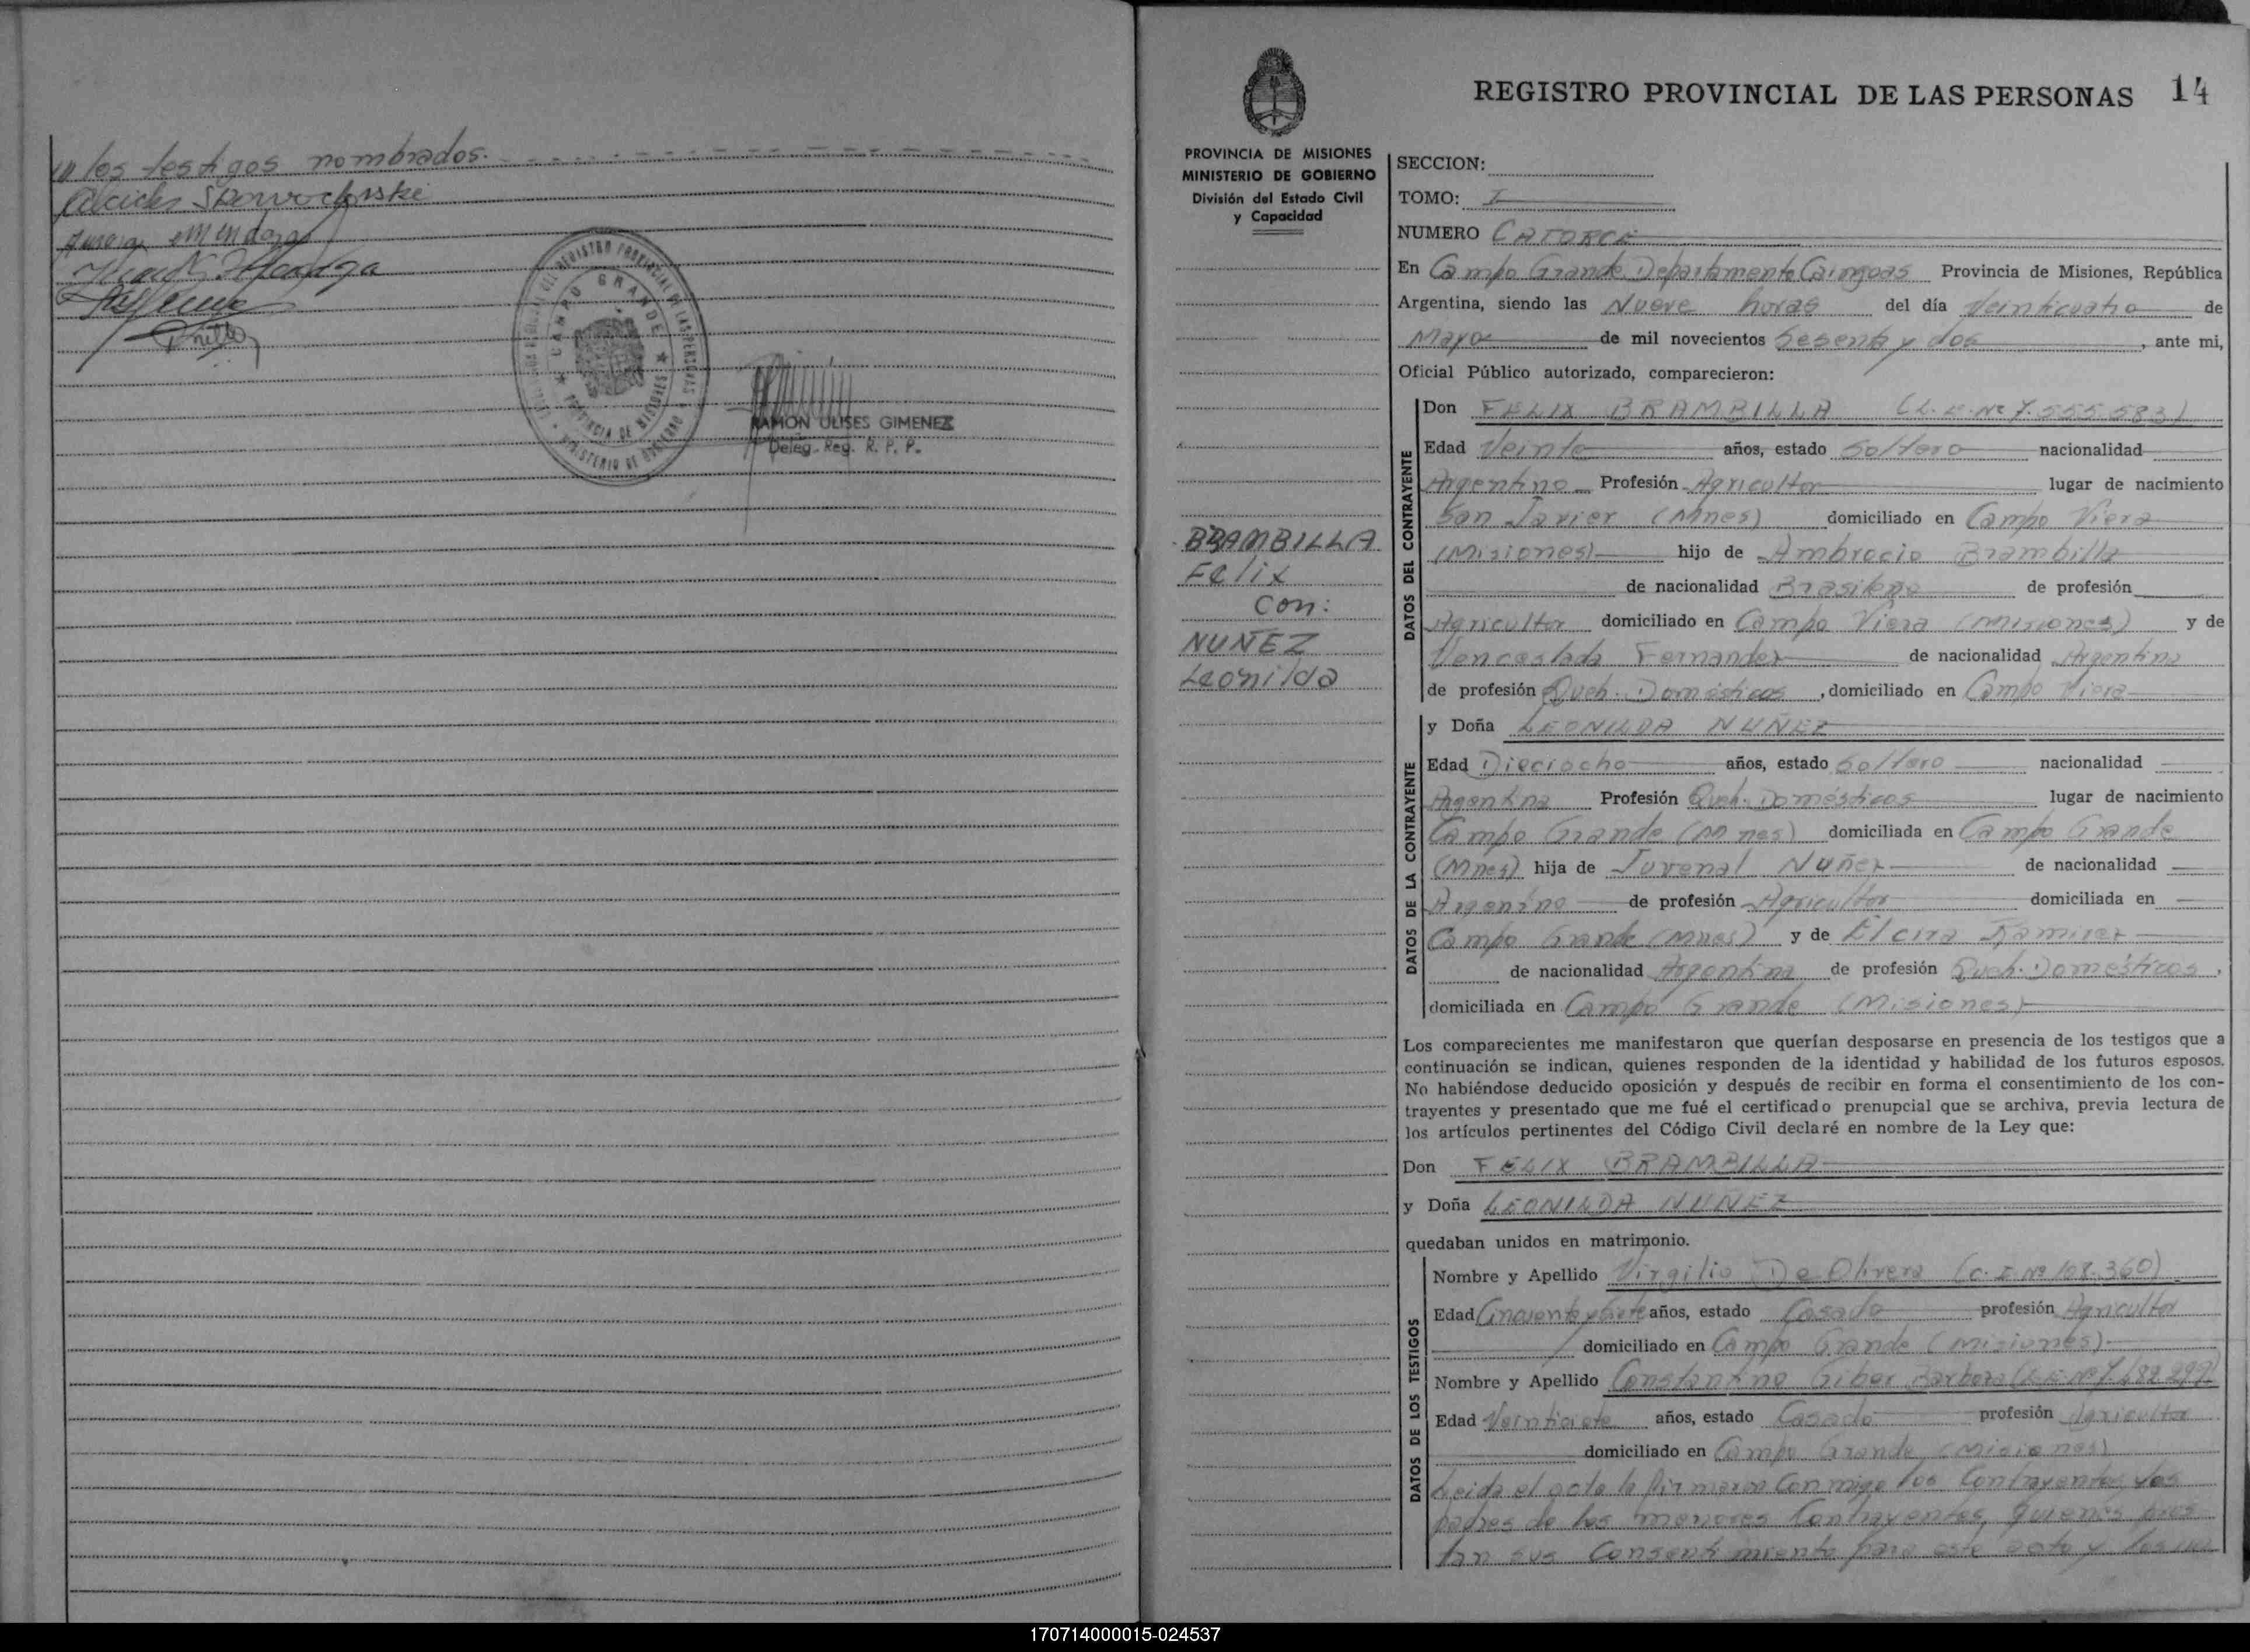 los testigos nombrados.
Skowrodonski
Mendoza
CAMPO GRANDE
PROVINCIA DE MISIONES
MINISTERIO DE GOBIERNO
RAMON ULISES GIMENEZ
Deleg. Reg. R. P. P.
REGISTRO PROVINCIAL DE LAS PERSONAS 14
PROVINCIA DE MISIONES
MINISTERIO DE GOBIERNO
División del Estado Civil
y Capacidad
BRAMBILLA
Felix
Con:
NUÑEZ
Leonilda
SECCION:
TOMO: I
NUMERO CATORCE
En Campo Grande Departamento Caingoas Provincia de Misiones, República
Argentina, siendo las Nueve horas del día Veinticuatro de
Mayo de mil novecientos Sesenta y dos, ante mi,
Oficial Público autorizado, comparecieron:
DATOS DEL CONTRAYENTE
Don FELIX BRAMBILLA (L. E. Nº 7.555.583)
Edad Veinte años, estado Soltero nacionalidad
Argentino Profesión Agricultor lugar de nacimiento
San Javier (Mnes) domiciliado en Campo Viera
(Misiones) hijo de Ambrocio Brambilla
de nacionalidad Brasileño de profesión
Agricultor domiciliado en Campo Viera (Misiones) y de
Venceslada Fernandez de nacionalidad Argentina
de profesión Queh. Domésticos, domiciliado en Campo Viera
DATOS DE LA CONTRAYENTE
y Doña LEONILDA NUÑEZ
Edad Dieciocho años, estado Soltero nacionalidad
Argentina Profesión Queh. Domésticos lugar de nacimiento
Campo Grande (Mnes) domiciliada en Campo Grande
(Mnes) hija de Juvenal Nuñez de nacionalidad
Argentino de profesión Agricultor domiciliada en
Campo Grande (Mnes) y de Elcira Ramirez
de nacionalidad Argentina de profesión Queh. Domésticos,
domiciliada en Campo Grande (Misiones)
Los comparecientes me manifestaron que querían desposarse en presencia de los testigos que a
continuación se indican, quienes responden de la identidad y habilidad de los futuros esposos.
No habiéndose deducido oposición y después de recibir en forma el consentimiento de los con-
trayentes y presentado que me fué el certificado prenupcial que se archiva, previa lectura de
los artículos pertinentes del Código Civil declaré en nombre de la Ley que:
Don FELIX BRAMBILLA
y Doña LEONILDA NUÑEZ
quedaban unidos en matrimonio.
DATOS DE LOS TESTIGOS
Nombre y Apellido Virgilio De Olivera (C. I. Nº 108.360)
Edad Cincuenta y siete años, estado Casado profesión Agricultor
domiciliado en Campo Grande (Misiones)
Nombre y Apellido Constantino Giber Barboza
Edad Veintisiete años, estado Casado profesión Agricultor
domiciliado en Campo Grande (Misiones)
Leida el acta la firmaron Conmigo los Contrayentes, los
padres de los menores Contrayentes, quienes pres
tan sus Consentimiento para este acto y
170714000015-024537